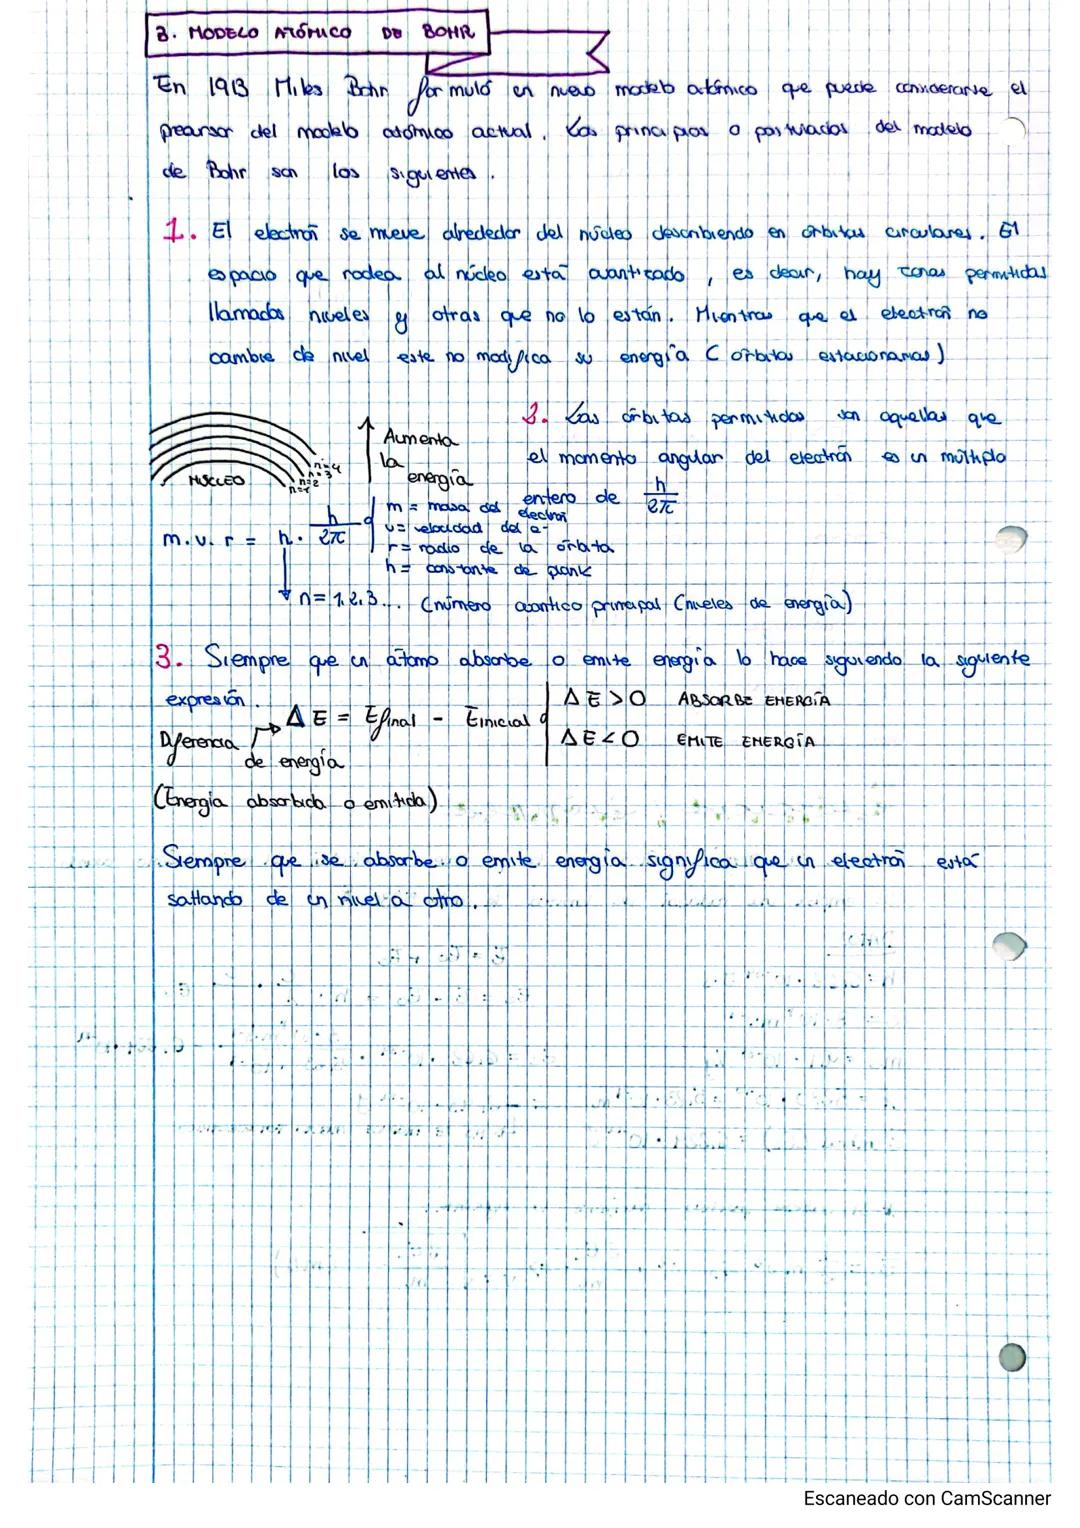 3. MODELO ATÓMICO DE BOHR
En 1913 Miles Bohr formuló un nuevo modelo atómico que puede considerarse el
precursor del modelo atómico actual. Los principios o postulados del modelo
de Bohr son los siguientes.
1. El electrón se mueve alrededor del núcleo describiendo en órbitas circulares. El
espacio que rodea al núcleo está cuanticado, es decir, hay zonas permitidas
llamadas niveles y otras que no lo están. Mientras que el electrón no
cambie de nivel este no modifica su energía (orbitas estacionarias)
2. Las órbitas permitidas son aquellas que
el momento angular del electrón es un múltiplo
entero de h/2π
NÚCLEO
n=1
n=2
n=3
n=4
Aumenta
la
energía
m.v.r = n. h/2π
m = masa del electrón
v = velocidad del e-
r = radio de la órbita
h = constante de plank
n=1,2,3... (número cuantico principal (niveles de energía)
3. Siempre que un átomo absorbe o emite energía lo hace siguiendo la siguiente
expresión.
ΔE = Efinal - Einicial
ΔE>0 ABSORBE ENERGÍA
ΔE<0 EMITE ENERGÍA
Diferencia
de energía
(Energía absorbida o emitida)
Siempre que se absorbe o emite energía significa que un electrón está
saltando de un nivel a otro.
Escaneado con CamScanner